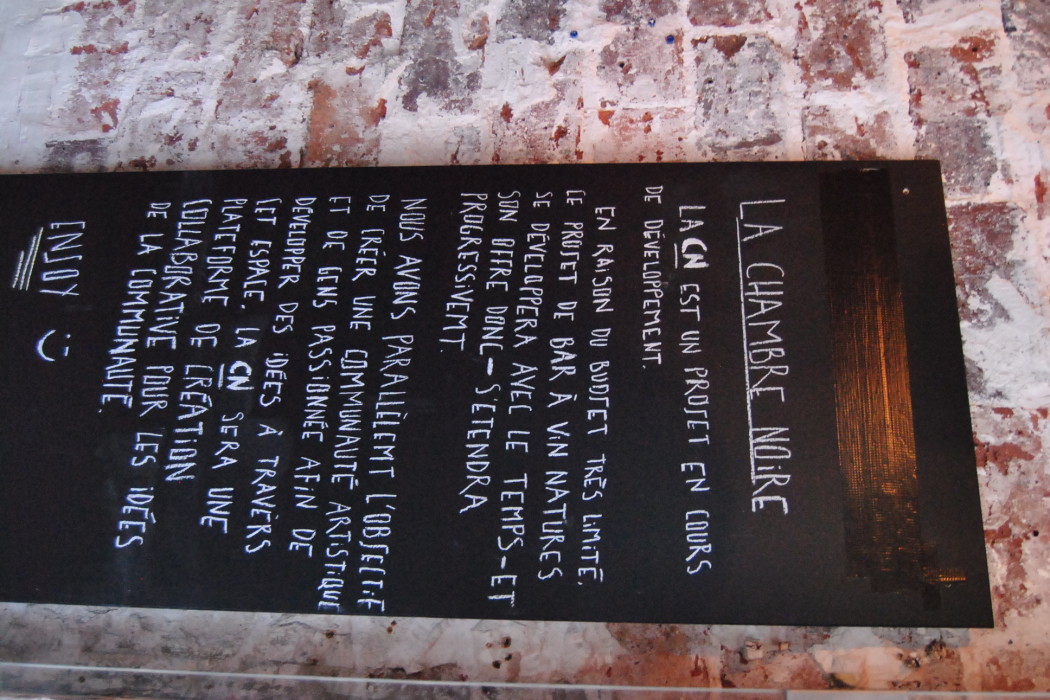 LA CHAMBRE NOIRE
LA CN EST UN PROJET EN COURS
DE DÉVELOPPEMENT.
EN RAISON DU BUDJET TRÈS LIMITÉ,
CE PROJET DE BAR À VIN NATURES
SE DÉVELOPPERA AVEC LE TEMPS-ET
SON OFFRE DONC - S'ETENDRA
PROGRESSIVEMT.
NOUS AVONS PARALLÈLEMT L'OBJECTIF
DE CRÉER UNE COMMUNAUTÉ ARTISTIQUE
ET DE GENS PASSIONNÉE AFIN DE
DEVELOPPER DES IDÉES À TRAVERS
CET ESPACE. LA CN SERA UNE
PLATEFORME DE CRÉATION
COLLABORATIVE POUR LES IDÉES
DE LA COMMUNAUTÉ.
ENJOY